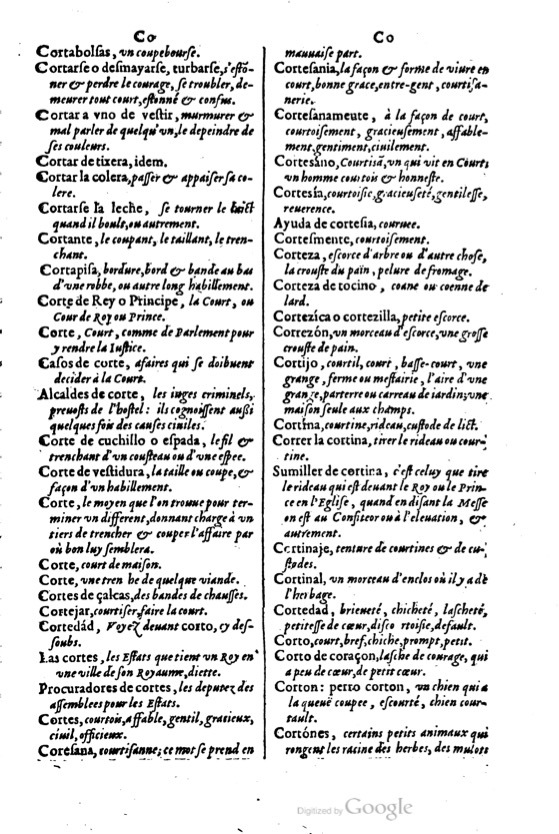 Co
Cortabolsas, vn coupebourse.
Cortarse o desmayarse, turbarse, s'estõ-
ner & perdre le courage, se troubler, de-
meurer tout court, estonné & confus.
Cortar a vno de vestir, murmurer &
mal parler de quelqu'vn, le depeindre de
ses couleurs.
Cortar de tixera, idem.
Cortar la colera, passer & appaiser sa co-
lere.
Cortarse la leche, se tourner le laict
quand il boult, ou autrement.
Cortante, le coupant, le taillant, le tren-
chant.
Cortapisa, bordure, bord & bande au bas
d'vne robbe, ou autre long habillement.
Corte de Rey o Principe, la Court, ou
Cour de Roy ou Prince.
Corte, Court, comme de Parlement pour
y rendre la Iustice.
Casos de corte, afaires qui se doibuent
decider à la Court.
Alcaldes de corte, les iuges criminels,
preuosts de l'hostel: ils cognoissent außi
quelques fois des causes ciuiles.
Corte de cuchillo o espada, le fil &
trenchant d'vn cousteau ou d'vne espee.
Corte de vestidura, la taille ou coupe, &
façon d'vn habillement.
Corte, le moyen que l'on trouue pour ter-
miner vn different, donnant charge à vn
tiers de trencher & couper l'affaire par
où bon luy semblera.
Corte, court de maison.
Corte, vne tren he de quelque viande.
Cortes de çalcas, des bandes de chausses.
Cortejar, courtiser, faire la court.
Cortedád, Voyez deuant corto, cy des-
soubs.
Las cortes, les Estats que tient vn Roy en
vne ville de son Royaume, diette.
Procuradores de cortes, les deputez des
assemblees pour les Estats.
Cortes, courtois, affable, gentil, gratieux,
ciuil, officieux.
Cortesana, courtisanne; ce mot se prend en
Co
mauuaise part.
Cortesania, la façon & forme de viure en
court, bonne grace, entre-gent, courtisa-
nerie.
Cortesanameute, à la façon de court,
courtoisement, gracieusement, affable-
ment, gentiment, ciuilement.
Cortesano, Courtisã, vn qui vit en Court,
vn homme courtois & honneste.
Cortesía, courtoisie, gracieuseté, gentilesse,
reuerence.
Ayuda de cortesia, couruee.
Cortesmente, courtoisement.
Corteza, escorce d'arbre ou d'autre chose,
la crouste du pain, pelure de fromage.
Corteza de tocino, coane ou coenne de
lard.
Cortezica o cortezilla, petite escorce.
Cortezón, vn morceau d'escorce, vne grosse
crouste de pain.
Cortijo, courtil, court, basse-court, vne
grange, ferme ou mestairie, l'aire d'vne
grange, parterre ou carreau de iardin; vne
maison seule aux champs.
Cortina, courtine, rideau, custode de lict.
Correr la cortina, tirer le rideau ou cour-
tine.
Sumiller de cortina, c'est celuy que tire
le rideau qui est deuant le Roy ou le Prin-
ce en l'Eglise, quand en disant la Messe
on est au Confiteor ou à l'eleuation, &
autrement.
Cortinaje, tenture de courtines & de cu-
stodes.
Cortinal, vn morceau d'enclos où il y a de
l'herbage.
Cortedad, brieueté, chicheté, lascheté,
petitesse de cœur, disco rtoisie, default.
Corto, court, bref, chiche, prompt, petit.
Corto de coraçon, lasche de courage, qui
a peu de cœur, de petit cœur.
Corton: perro corton, vn chien qui a
la queuë coupee, escourté, chien cour-
tault.
Cortónes, certains petits animaux qui
rongent les racine des herbes, des mulots
Digitized by Google